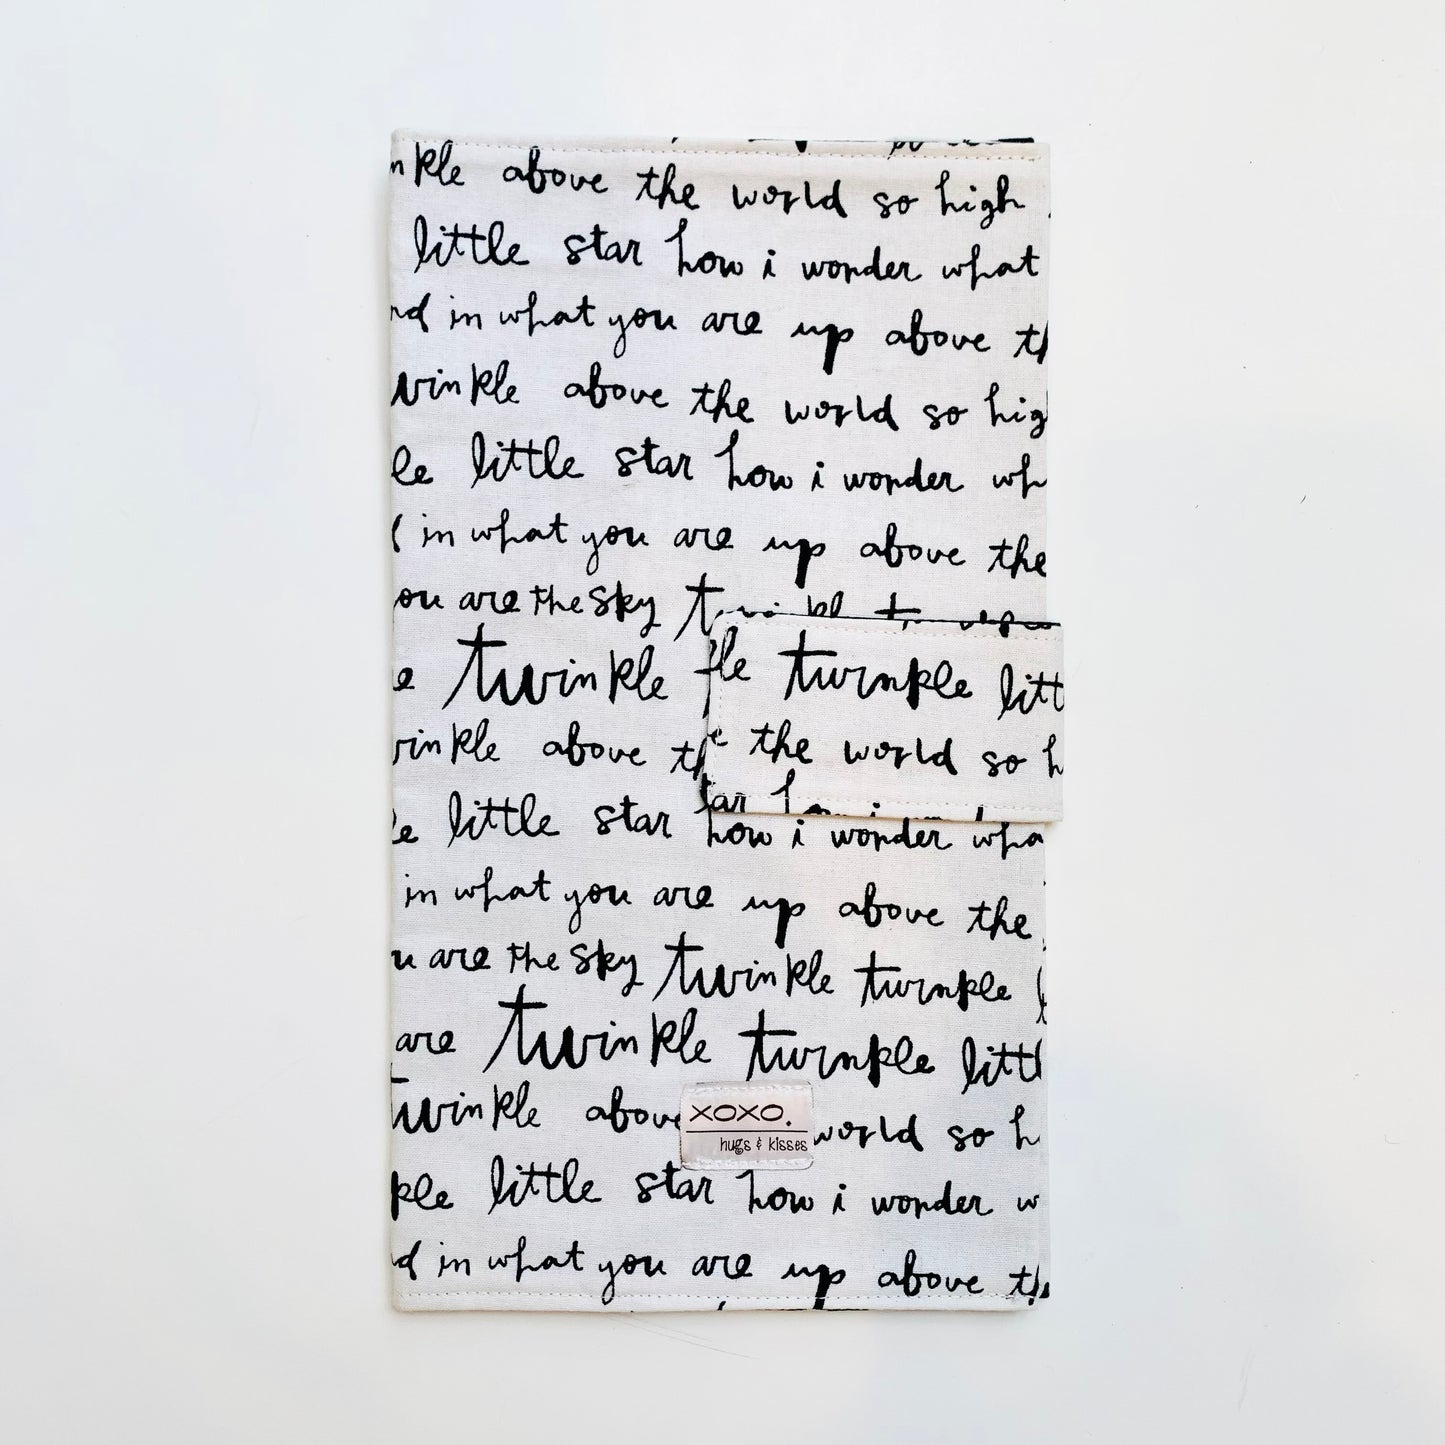 nkle above the world so high
little star how i wonder what
nd in what you are up above th
winkle above the world so hig
le little star how i wonder wh
d in what you are up above the
ou are the sky
e twinkle
le twinkle litt
winkle above th
e the world so h
e little star how i wonder wha
in what you are up above the
u are the sky twinkle twinkle l
are twinkle twinkle littl
twinkle above world so h
xoxo.
hugs & kisses
kle little star how i wonder w
nd in what you are up above th